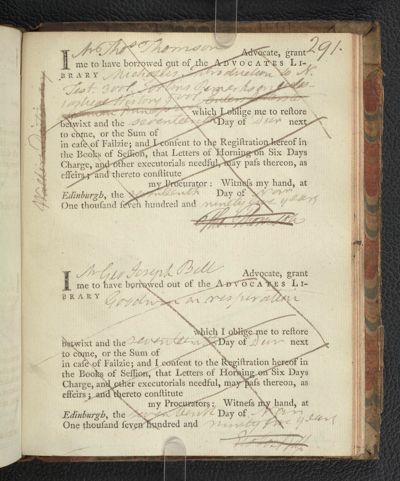 291.
I Mr Thos Thomson Advocate, grant
me to have borrowed out of the ADVOCATES LI-
BRARY Michaelis Introduction to N.
Test.
which I oblige me to restore
betwixt and the seventeenth Day of Decr next
to come, or the Sum of
in case of Failzie; and I consent to the Registration hereof in
the Books of Session, that Letters of Horning on Six Days
Charge, and other executorials needful, may pass thereon, as
effeirs; and thereto constitute
my Procurator: Witness my hand, at
Edinburgh, the seventeenth Day of Novr
One thousand seven hundred and ninety five years
Tho Thomson
I Mr Geo Joseph Bell Advocate, grant
me to have borrowed out of the ADVOCATES LI-
BRARY Goodwin on respiration
which I oblige me to restore
betwixt and the seventeenth Day of Decr next
to come, or the Sum of
in case of Failzie; and I consent to the Registration hereof in
the Books of Session, that Letters of Horning on Six Days
Charge, and other executorials needful, may pass thereon, as
effeirs; and thereto constitute
my Procurators; Witness my hand, at
Edinburgh, the seventeenth Day of Novr
One thousand seven hundred and ninety five years